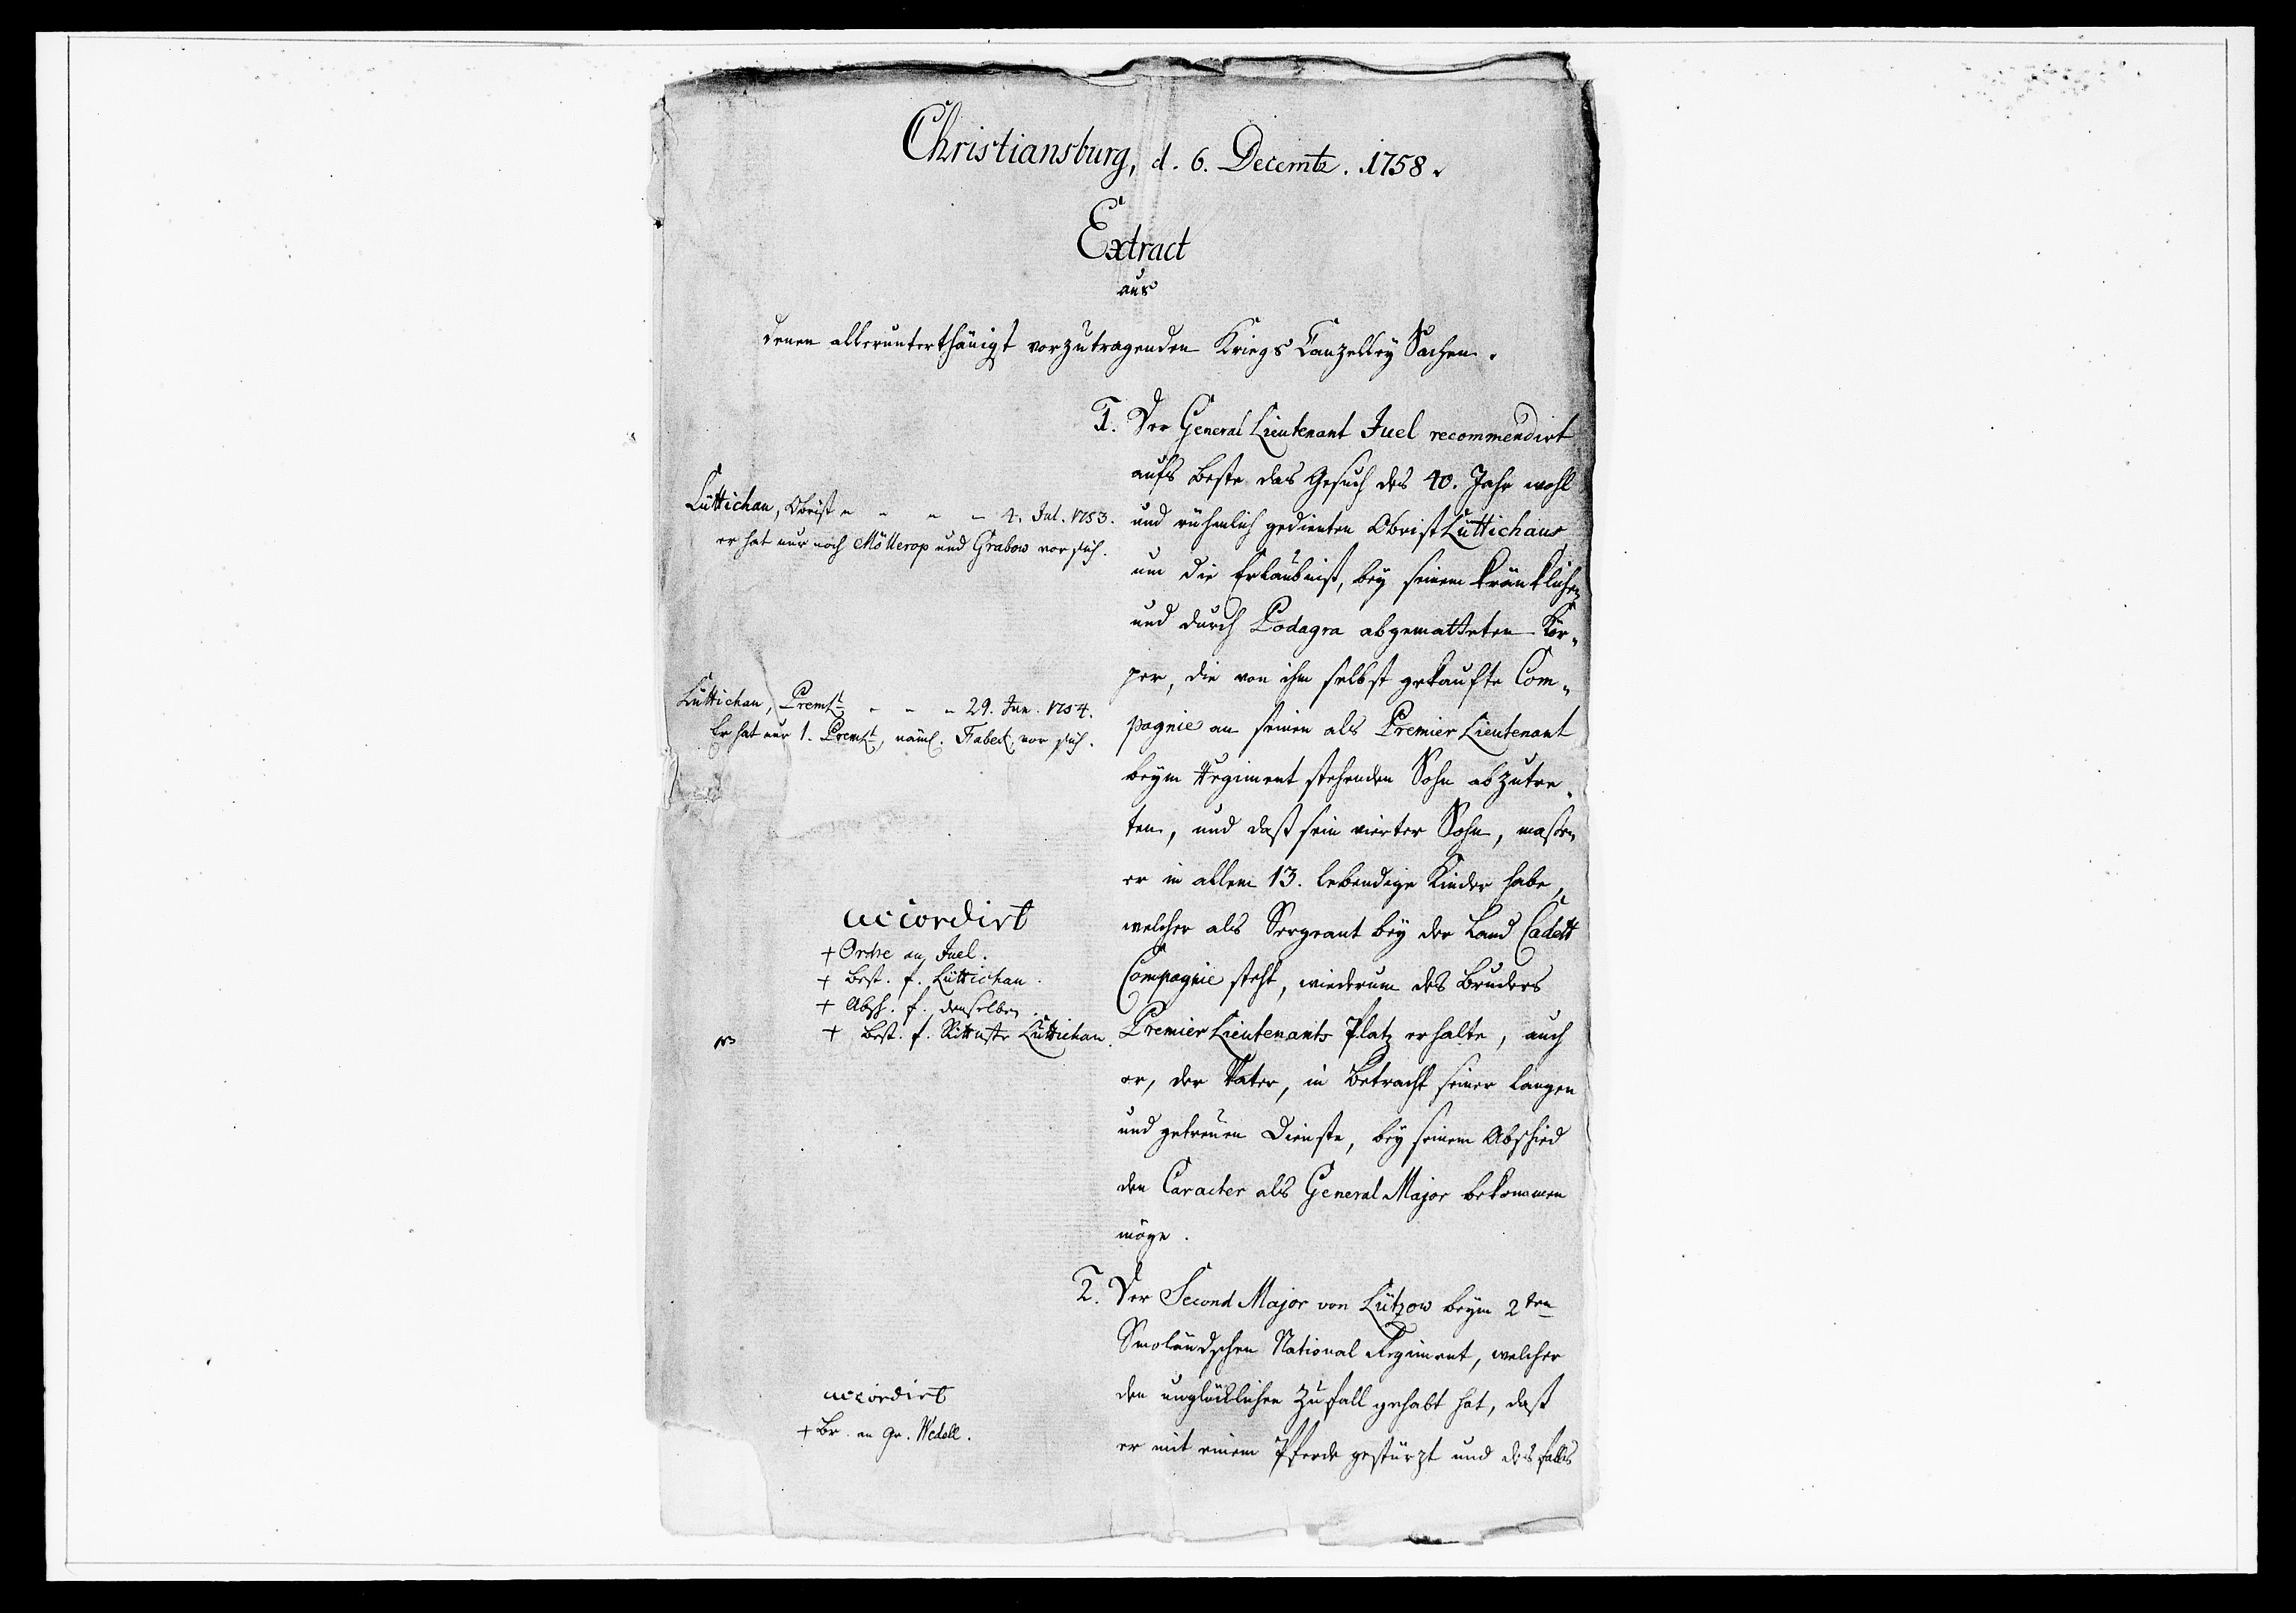 Christiansburg, d. 6. Decembr. 1758.
Extract
aus
denen allerunterthänigst vorzutragenden Kriegs Canzelley Sachen.
1. Der General Lieutenant Juel recommendirt
aufs beste das Gesuch des 40. Jahr wohl
und rühmlich gedienten Obrist Lüttichaus
um die Erlaubniß, bey seinem kränklichen
und durch Podagra abgematteten Kör-
per, die von ihm selbst gekaufte Com-
pagnie an seinen als Premier Lieutenant
beym Regiment stehenden Sohn abzutre-
ten, und daß sein vierter Sohn, maßen
er in allem 13. lebendige Kinder habe,
welcher als Sergeant bey der Land Cadett
Compagnie steht, wiederum des Bruders
Premier Lieutenants Platz erhalte, auch
er, der Vater, in Betracht seiner langen
und getreuen Dienste, bey seinem Abschied
den Caracter als General Major bekommen
möge.
Lüttichau, Obrist - - - - 4. Jul. 1753.
er hat nur noch Möllerop und Grabow vor sich.
Lüttichau, Premlt. - - - 29. Jan. 1754.
Er hat nur 1. Premlt, näml. Flabeck, vor sich.
accordirt
+ Ordre an Juel.
+ Best. f. Lüttichau.
+ Absch. f. denselben.
+ Best. f. Rittmstr Lüttichau.
2. Der Second Major von Lützow beym 2ten
Smoländschen National Regiment, welcher
den unglücklichen Zufall gehabt hat, daß
er mit einem Pferde gestürzt und desfalls
accordirt
+ Br. an Gr. Wedell.